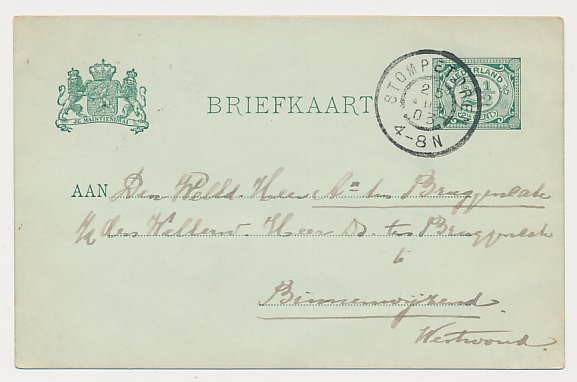 JE MAINTIENDRAI
BRIEFKAART
NEDERLAND
STOMPETOREN
4-8N
AAN Den Heer An ten Bruggencate
p/a den Heer Ds. ten Bruggencate
te
Binnenwijzend
Westwoud.